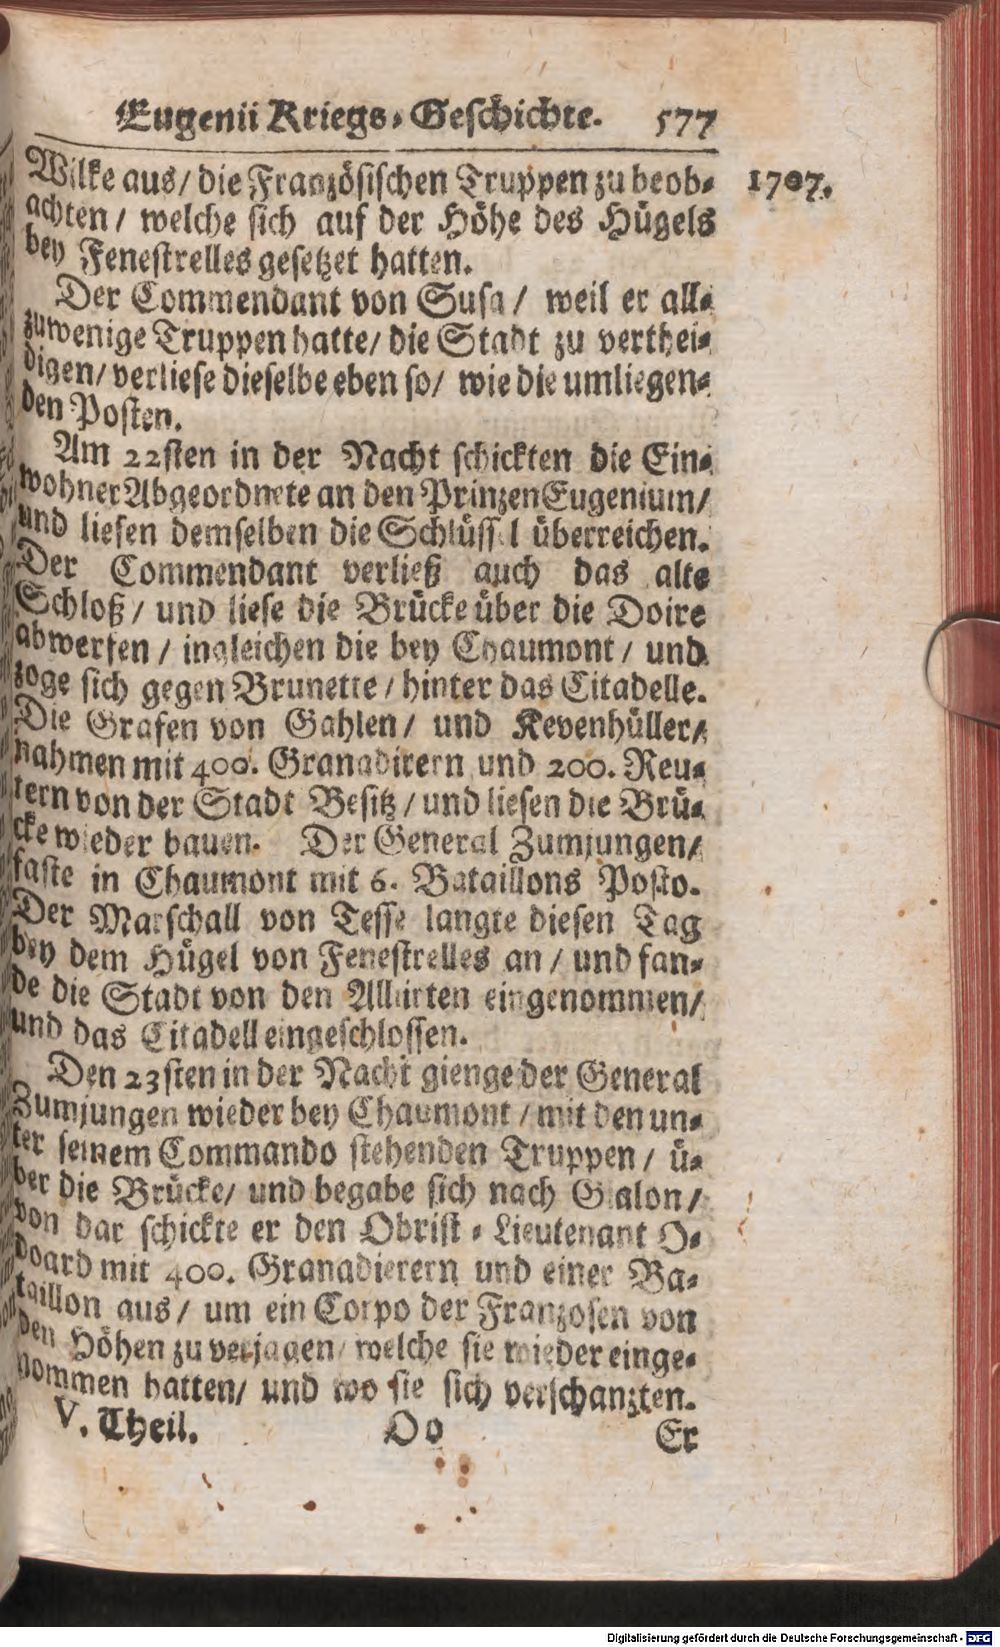 Eugenii Kriegs-Geschichte. 577
Wilke aus/ die Französischen Truppen zu beob- 1707.
achten/ welche sich auf der Höhe des Hügels
bey Fenestrelles gesetzet hatten.
Der Commendant von Susa/ weil er all-
zuwenige Truppen hatte/ die Stadt zu verthei-
digen/ verliese dieselbe eben so/ wie die umliegen-
den Posten.
Am 22sten in der Nacht schickten die Ein-
wohner Abgeordnete an den Prinzen Eugenium/
und liesen demselben die Schlüssel überreichen.
Der Commendant verließ auch das alte
Schloß/ und liese die Brücke über die Doire
abwerfen/ ingleichen die bey Chaumont/ und
zoge sich gegen Brunette/ hinter das Citadelle.
Die Grafen von Gahlen/ und Kevenhüller/
nahmen mit 400. Granadirern und 200. Reu-
tern von der Stadt Besitz/ und liesen die Brü-
cke wieder bauen. Der General Zumjungen/
faste in Chaumont mit 6. Bataillons Posto.
Der Marschall von Tesse langte diesen Tag
bey dem Hügel von Fenestrelles an/ und fan-
de die Stadt von den Alliirten eingenommen/
und das Citadell eingeschlossen.
Den 23sten in der Nacht gienge der General
Zumjungen wieder bey Chaumont/ mit den un-
ter seinem Commando stehenden Truppen/ ü-
ber die Brücke/ und begabe sich nach Gialon/
von dar schickte er den Obrist-Lieutenant O-
doard mit 400. Granadierern und einer Ba-
taillon aus/ um ein Corpo der Franzosen von
den Höhen zu verjagen/ welche sie wieder einge-
nommen hatten/ und wo sie sich verschanzten.
V. Theil. Oo Er
Digitalisierung gefördert durch die Deutsche Forschungsgemeinschaft - DFG